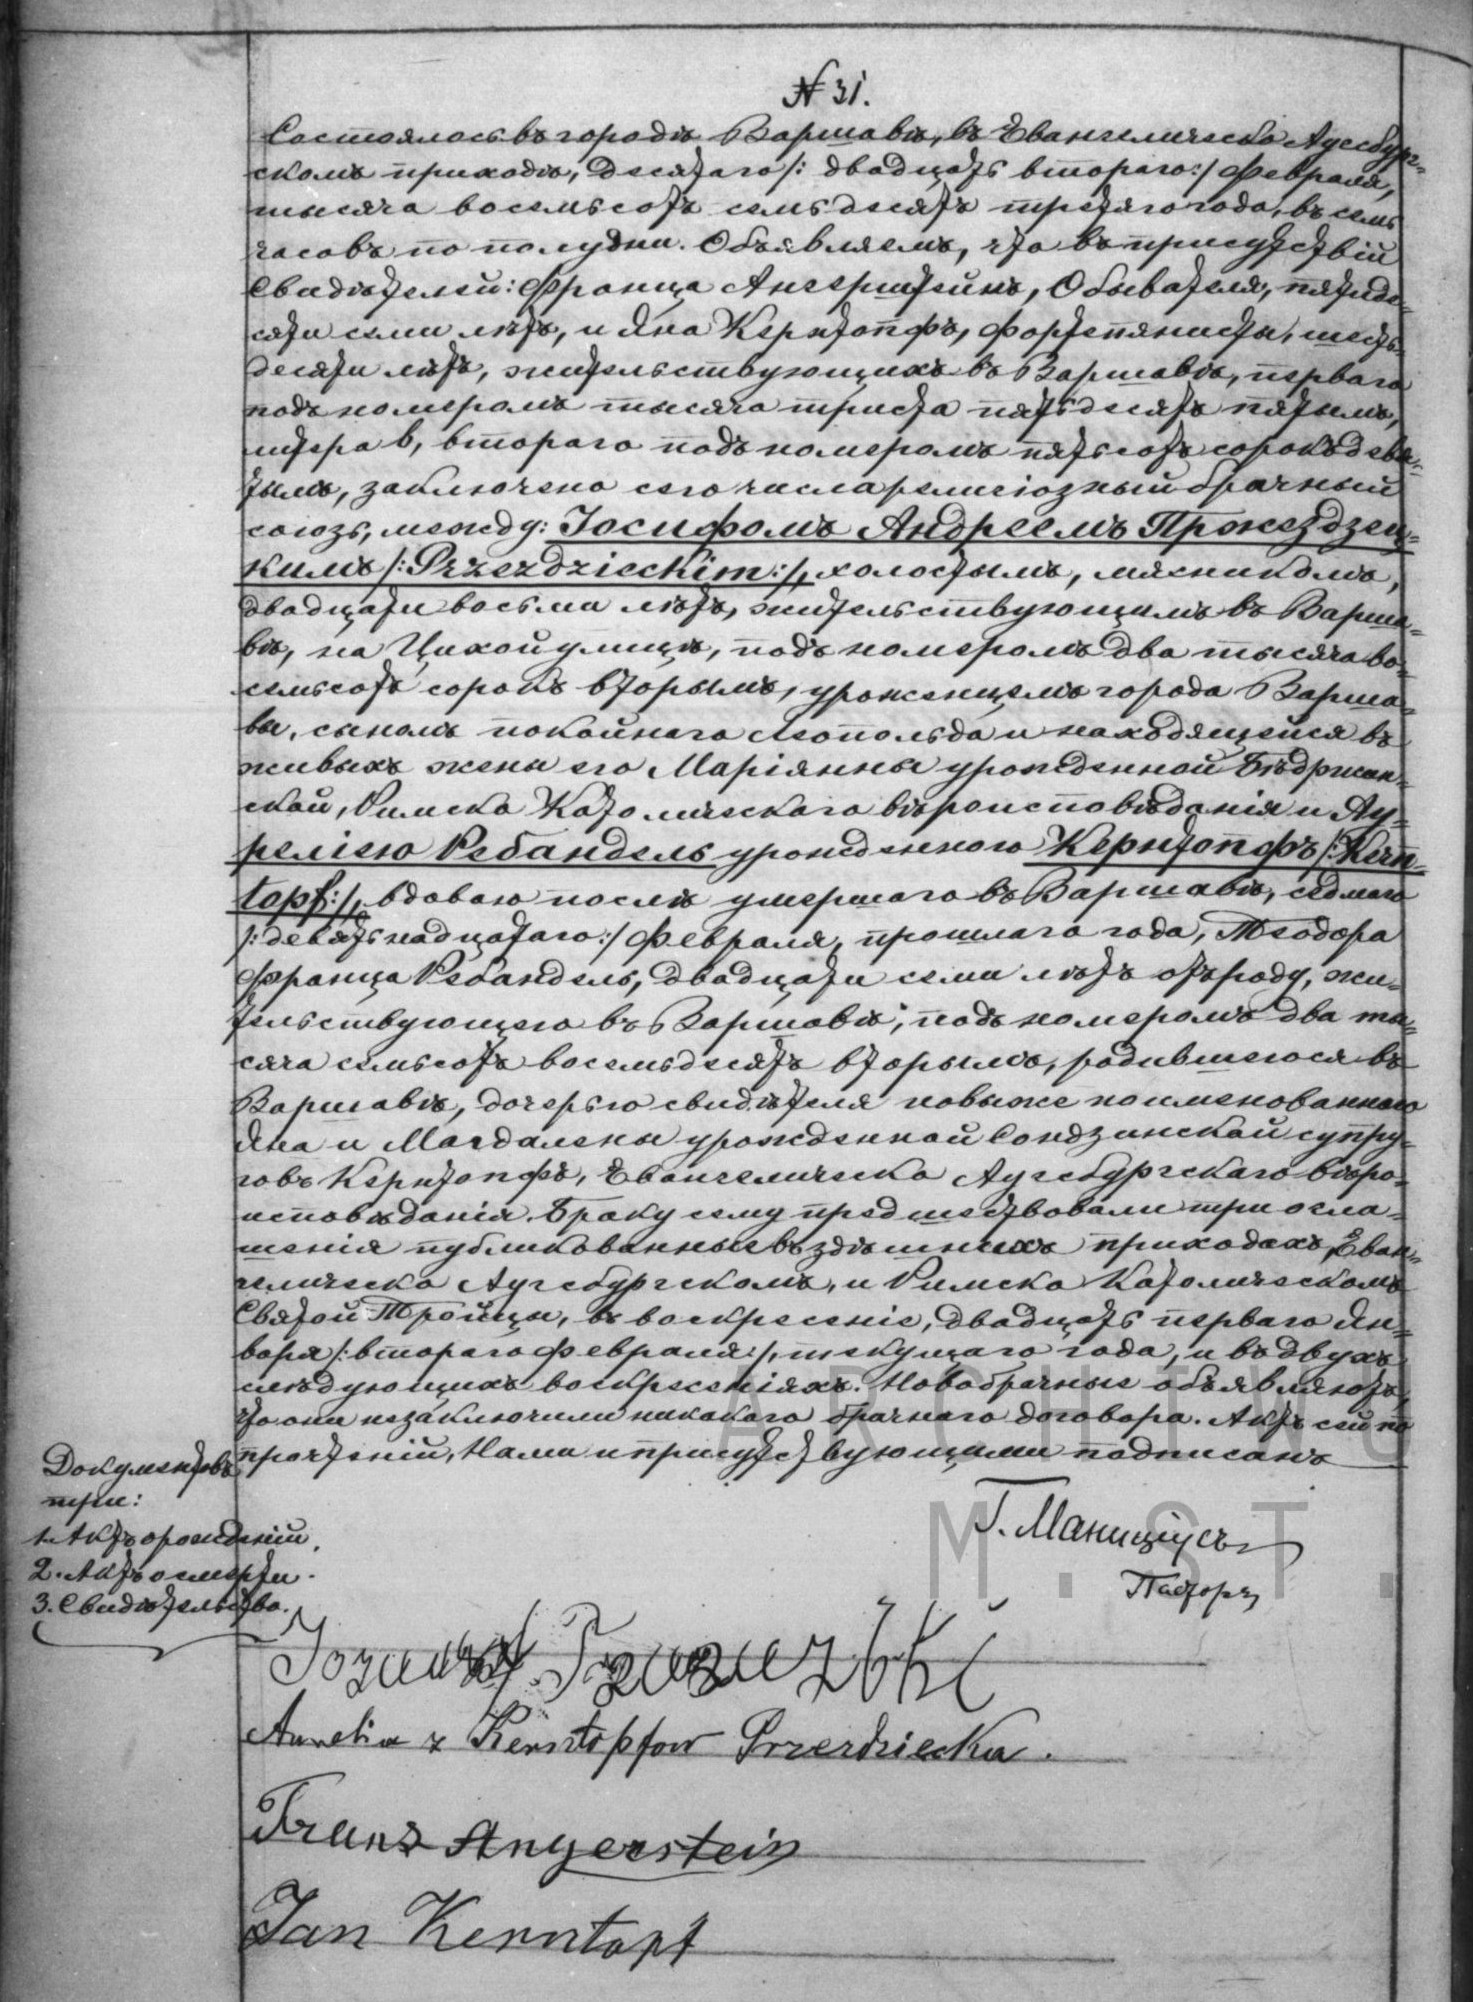 № 31.
Состоялось въ городѣ Варшавѣ, въ Евангелическо Аугсбург-
скомъ приходѣ, десятаго /: двадцать втораго :/ Февраля,
тысяча восемьсотъ семьдесятъ третяго года, въ семь
часовъ по полудни. Объявляемъ, что въ присутствіи
Свидѣтелей: Франца Ангерштейнъ, Обывателя, пятиде-
сяти семи лѣтъ, и Яна Кернтопфъ, фортепяниста, шесть-
десяти лѣтъ, жительствующихъ въ Варшавѣ, перваго
подъ номеромъ тысяча триста пятьдесятъ пятымъ,
литера в, втораго подъ номеромъ пятьсотъ сорокъ девя-
тымъ, заключено сего числа религіозный брачный
союзъ, между: Іосифомъ Андреемъ Пржездзец-
кимъ /: Przezdzieckim :/, холостымъ, мясникомъ,
двадцати восьми лѣтъ, жительствующимъ въ Варша-
вѣ, на Цихой улицѣ, подъ номеромъ два тысяча во-
семьсотъ сорокъ вторымъ, уроженцемъ города Варша-
вы, сыномъ покойнаго Леопольда и находящейся въ
живыхъ жены его Маріянны урожденной Бѣдржин-
ской, Римско Католическаго вѣроисповѣданія и Ау-
реліею Ребандель урожденною Кернтопфъ /: Kern-
topf :/, вдовою послѣ умершаго въ Варшавѣ, седмаго
/: девятьнадцатаго :/ Февраля, прошлаго года, Теодора
Франца Ребандель, двадцати семи лѣтъ отъ роду, жи-
тельствующею въ Варшавѣ, подъ номеромъ два ты-
сяча семьсотъ восемьдесятъ вторымъ, родившеюся въ
Варшавѣ, дочерью свидѣтеля повыже поименованнаго
Яна и Магдалены урожденной Сондзинской супру-
говъ Кернтопфъ, Евангелическо Аугсбургскаго вѣро-
исповѣданія. Браку сему предшествовали три огла-
шенія публикованные въ здѣшнихъ приходахъ, Еван-
гелическо Аугсбургскомъ, и Римско Католическомъ
Святой Тройцы, въ воскресеніе, двадцать перваго Ян-
варя /: втораго Февраля :/, текущаго года, и въ двухъ
слѣдующихъ воскресеніяхъ. Новобрачные объявляютъ,
что они незаключили никакого брачнаго договора. Актъ сей по
прочтеніи, Нами и присутствующими подписанъ
Документовъ
три:
1. Актъ о рожденіи.
2. Актъ о смерти.
3. Свидѣтельство.
Г. Маниціусъ
Пасторъ
Aurelia z Kerntopfow Przezdziecka.
Franz Angerstein
Jan Kerntopf
ARCHIWU
M.ST.